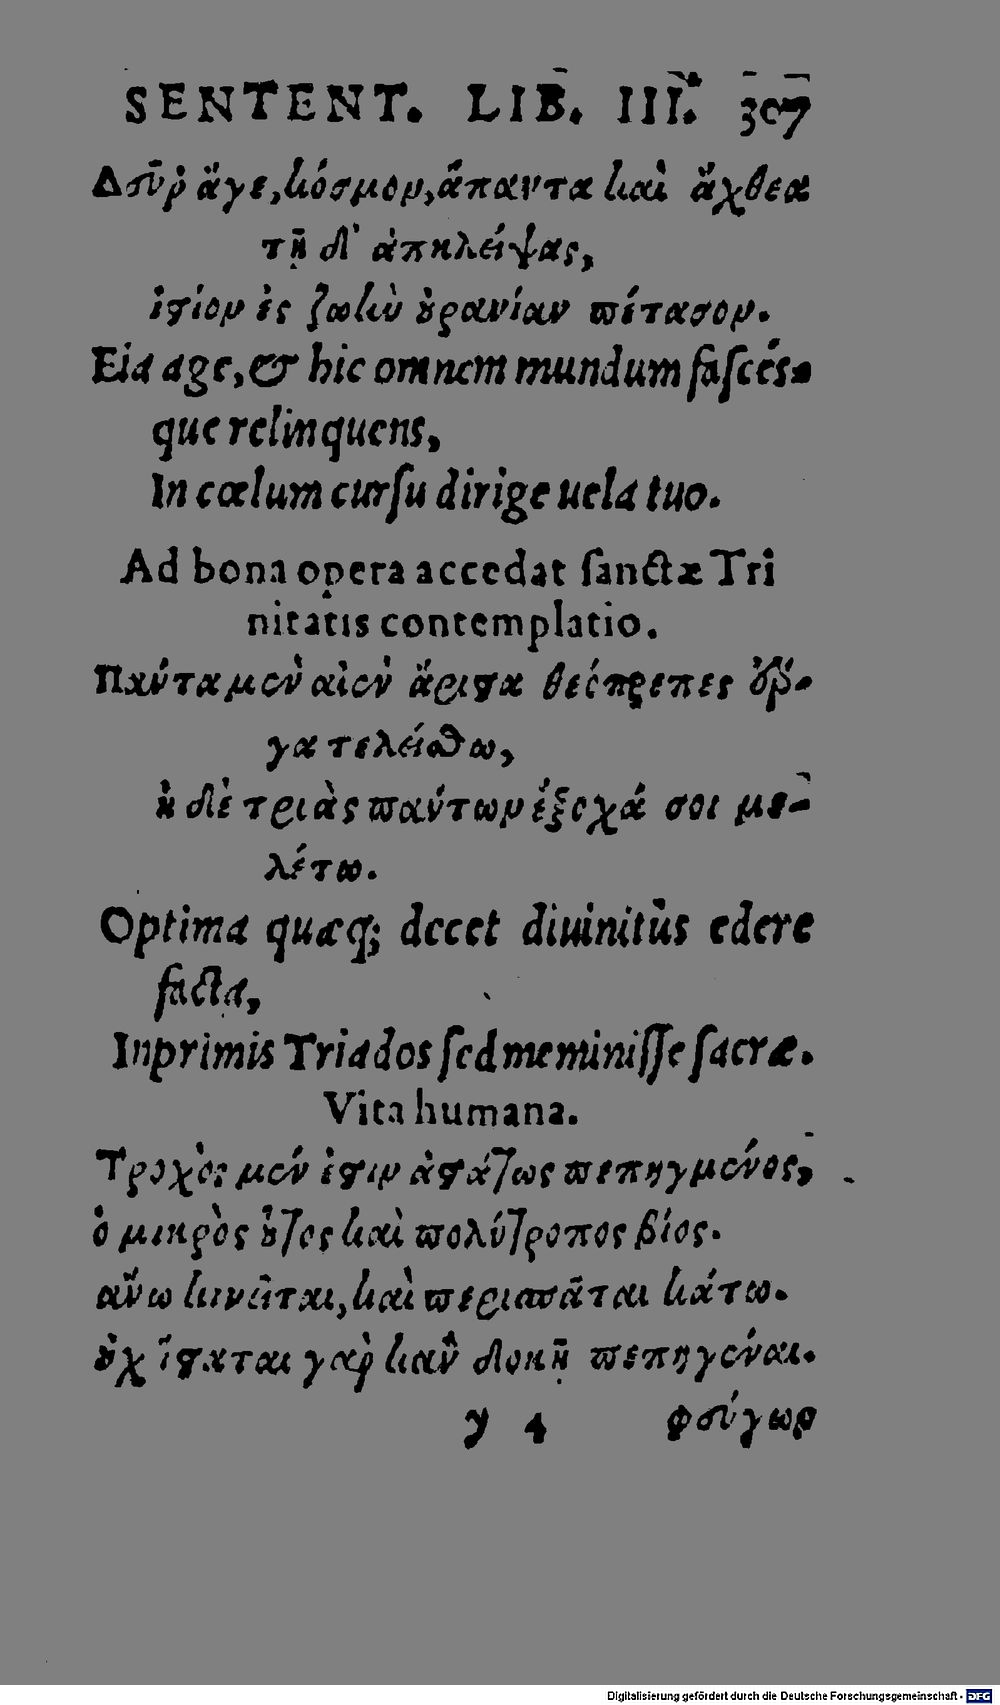 SENTENT. LIB. III. 307
Δεῦρ᾽ ἄγε, κόσμον, ἅπαντα καὶ ἄχθεα
τῇ δ᾽ ἀπολείψας,
ἱστίον ἐς ζωὴν οὐρανίαν πέτασον.
Eia age, & hic omnem mundum fasces-
que relinquens,
In cœlum cursu dirige uela tuo.
Ad bona opera accedat sanctæ Tri
nitatis contemplatio.
Πάντα μὲν αἰὲν ἄριστα θεόπρεπες ἔρ-
γα τελείσθω,
ἡ δὲ τριὰς πάντων ἔξοχά σοι με-
λέτω.
Optima quæq; decet diuinitùs edere
facta,
Inprimis Triados sed meminisse sacræ.
Vita humana.
Τροχός μέν ἐστιν ἀστάτως πεπηγμένος,
ὁ μικρὸς οὗτος καὶ πολύτροπος βίος.
ἄνω κινεῖται, καὶ περισπᾶται κάτω.
οὐχ ἵσταται γὰρ κἂν δοκῇ πεπηγέναι.
y 4 φεύγων
Digitalisierung gefördert durch die Deutsche Forschungsgemeinschaft - DFG